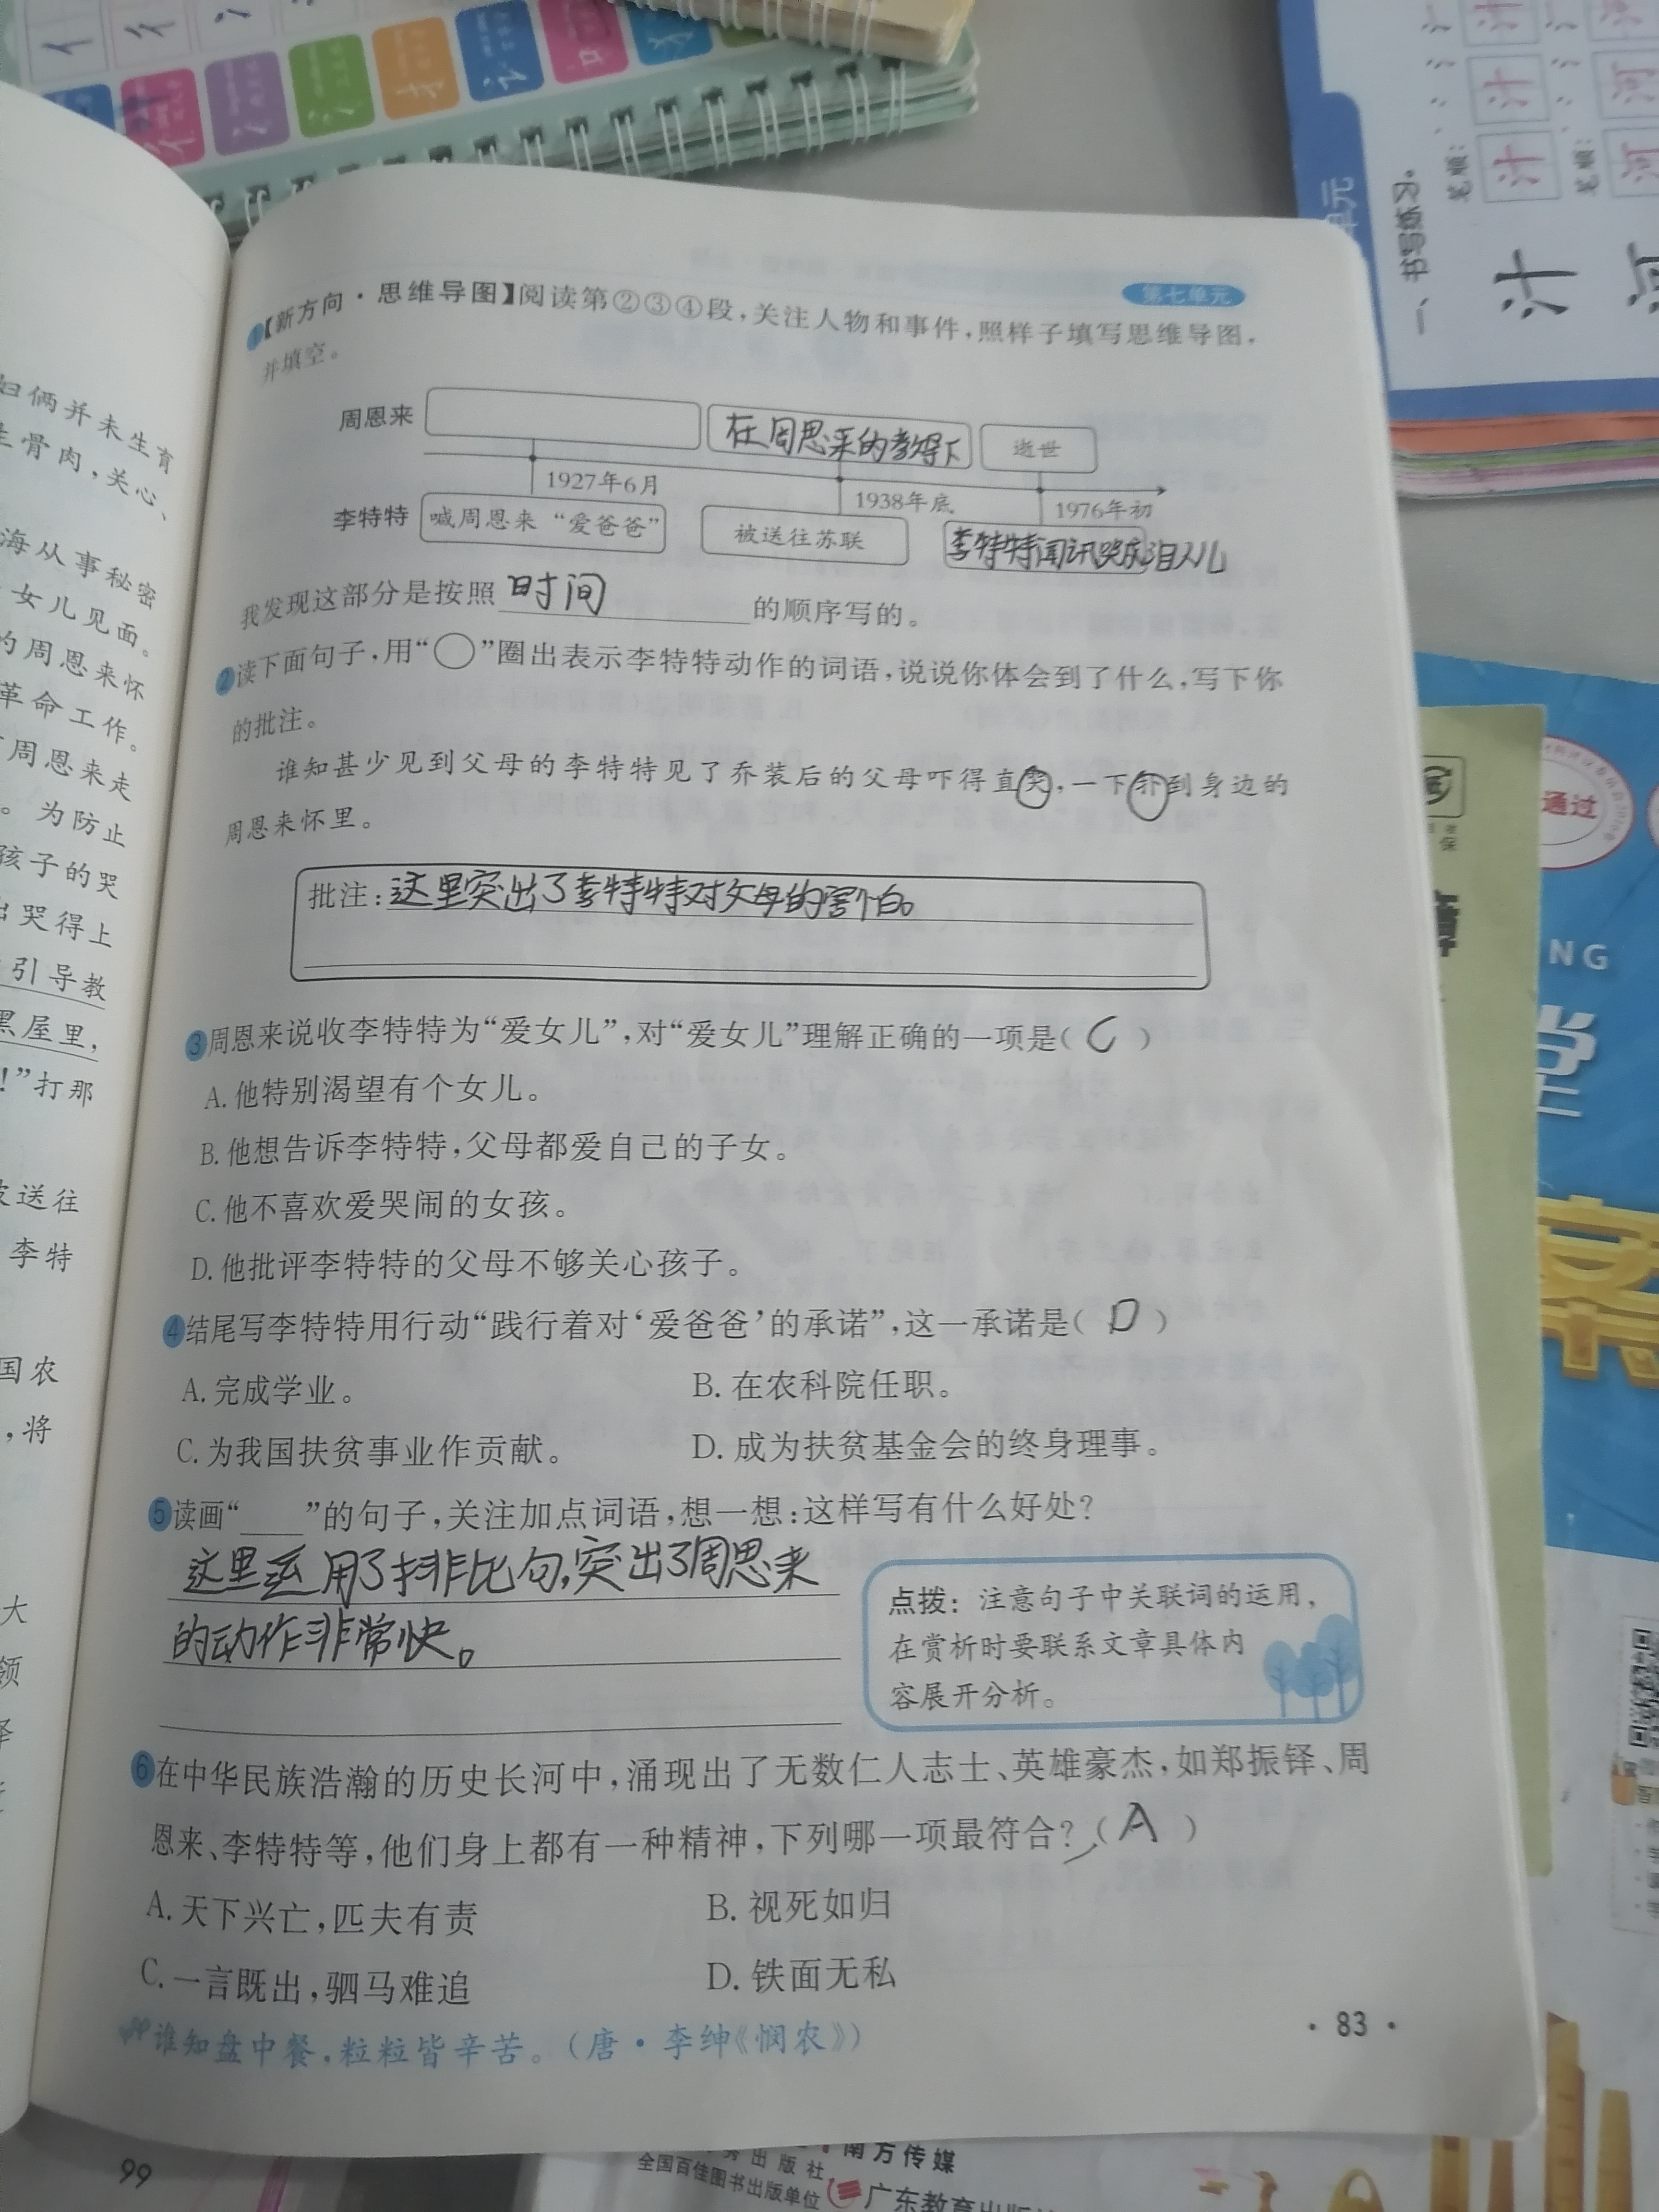 第七单元
1【新方向·思维导图】阅读第②③④段，关注人物和事件，照样子填写思维导图，
并填空。
周恩来
在周恩来的教导下
逝世
1927年6月
1938年底
1976年初
李特特
喊周恩来“爱爸爸”
被送往苏联
李特特闻讯哭成泪人儿
我发现这部分是按照 时间 的顺序写的。
2读下面句子，用“○”圈出表示李特特动作的词语，说说你体会到了什么，写下你
的批注。
谁知甚少见到父母的李特特见了乔装后的父母吓得直哭，一下扑到身边的
周恩来怀里。
批注：这里突出了李特特对父母的害怕。
3周恩来说收李特特为“爱女儿”，对“爱女儿”理解正确的一项是（ C ）
A.他特别渴望有个女儿。
B.他想告诉李特特，父母都爱自己的子女。
C.他不喜欢爱哭闹的女孩。
D.他批评李特特的父母不够关心孩子。
4结尾写李特特用行动“践行着对‘爱爸爸’的承诺”，这一承诺是（ D ）
A.完成学业。
B.在农科院任职。
C.为我国扶贫事业作贡献。
D.成为扶贫基金会的终身理事。
5读画“____”的句子，关注加点词语，想一想：这样写有什么好处？
这里运用了排比句，突出了周恩来
的动作非常快。
点拨：注意句子中关联词的运用，
在赏析时要联系文章具体内
容展开分析。
6在中华民族浩瀚的历史长河中，涌现出了无数仁人志士、英雄豪杰，如郑振铎、周
恩来、李特特等，他们身上都有一种精神，下列哪一项最符合？（ A ）
A.天下兴亡，匹夫有责
B.视死如归
C.一言既出，驷马难追
D.铁面无私
谁知盘中餐，粒粒皆辛苦。（唐·李绅《悯农》）
·83·
妇俩并未生育
骨肉，关心、
海从事秘密
女儿见面。
的周恩来怀
革命工作。
周恩来走
。为防止
孩子的哭
哭得上
引导教
黑屋里，
！”打那
被送往
李特
国农
，将
大
领
99
一、书写练习。
笔顺：
汁
笔顺：
河
单元
通过
NG
南方传媒
出版社
全国百佳图书出版单位
广东教育出版社